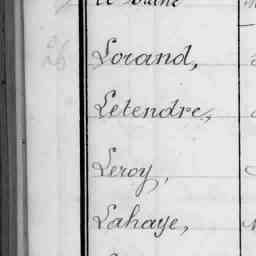 Lorand,
Letendre,
Leroy,
Lahaye,